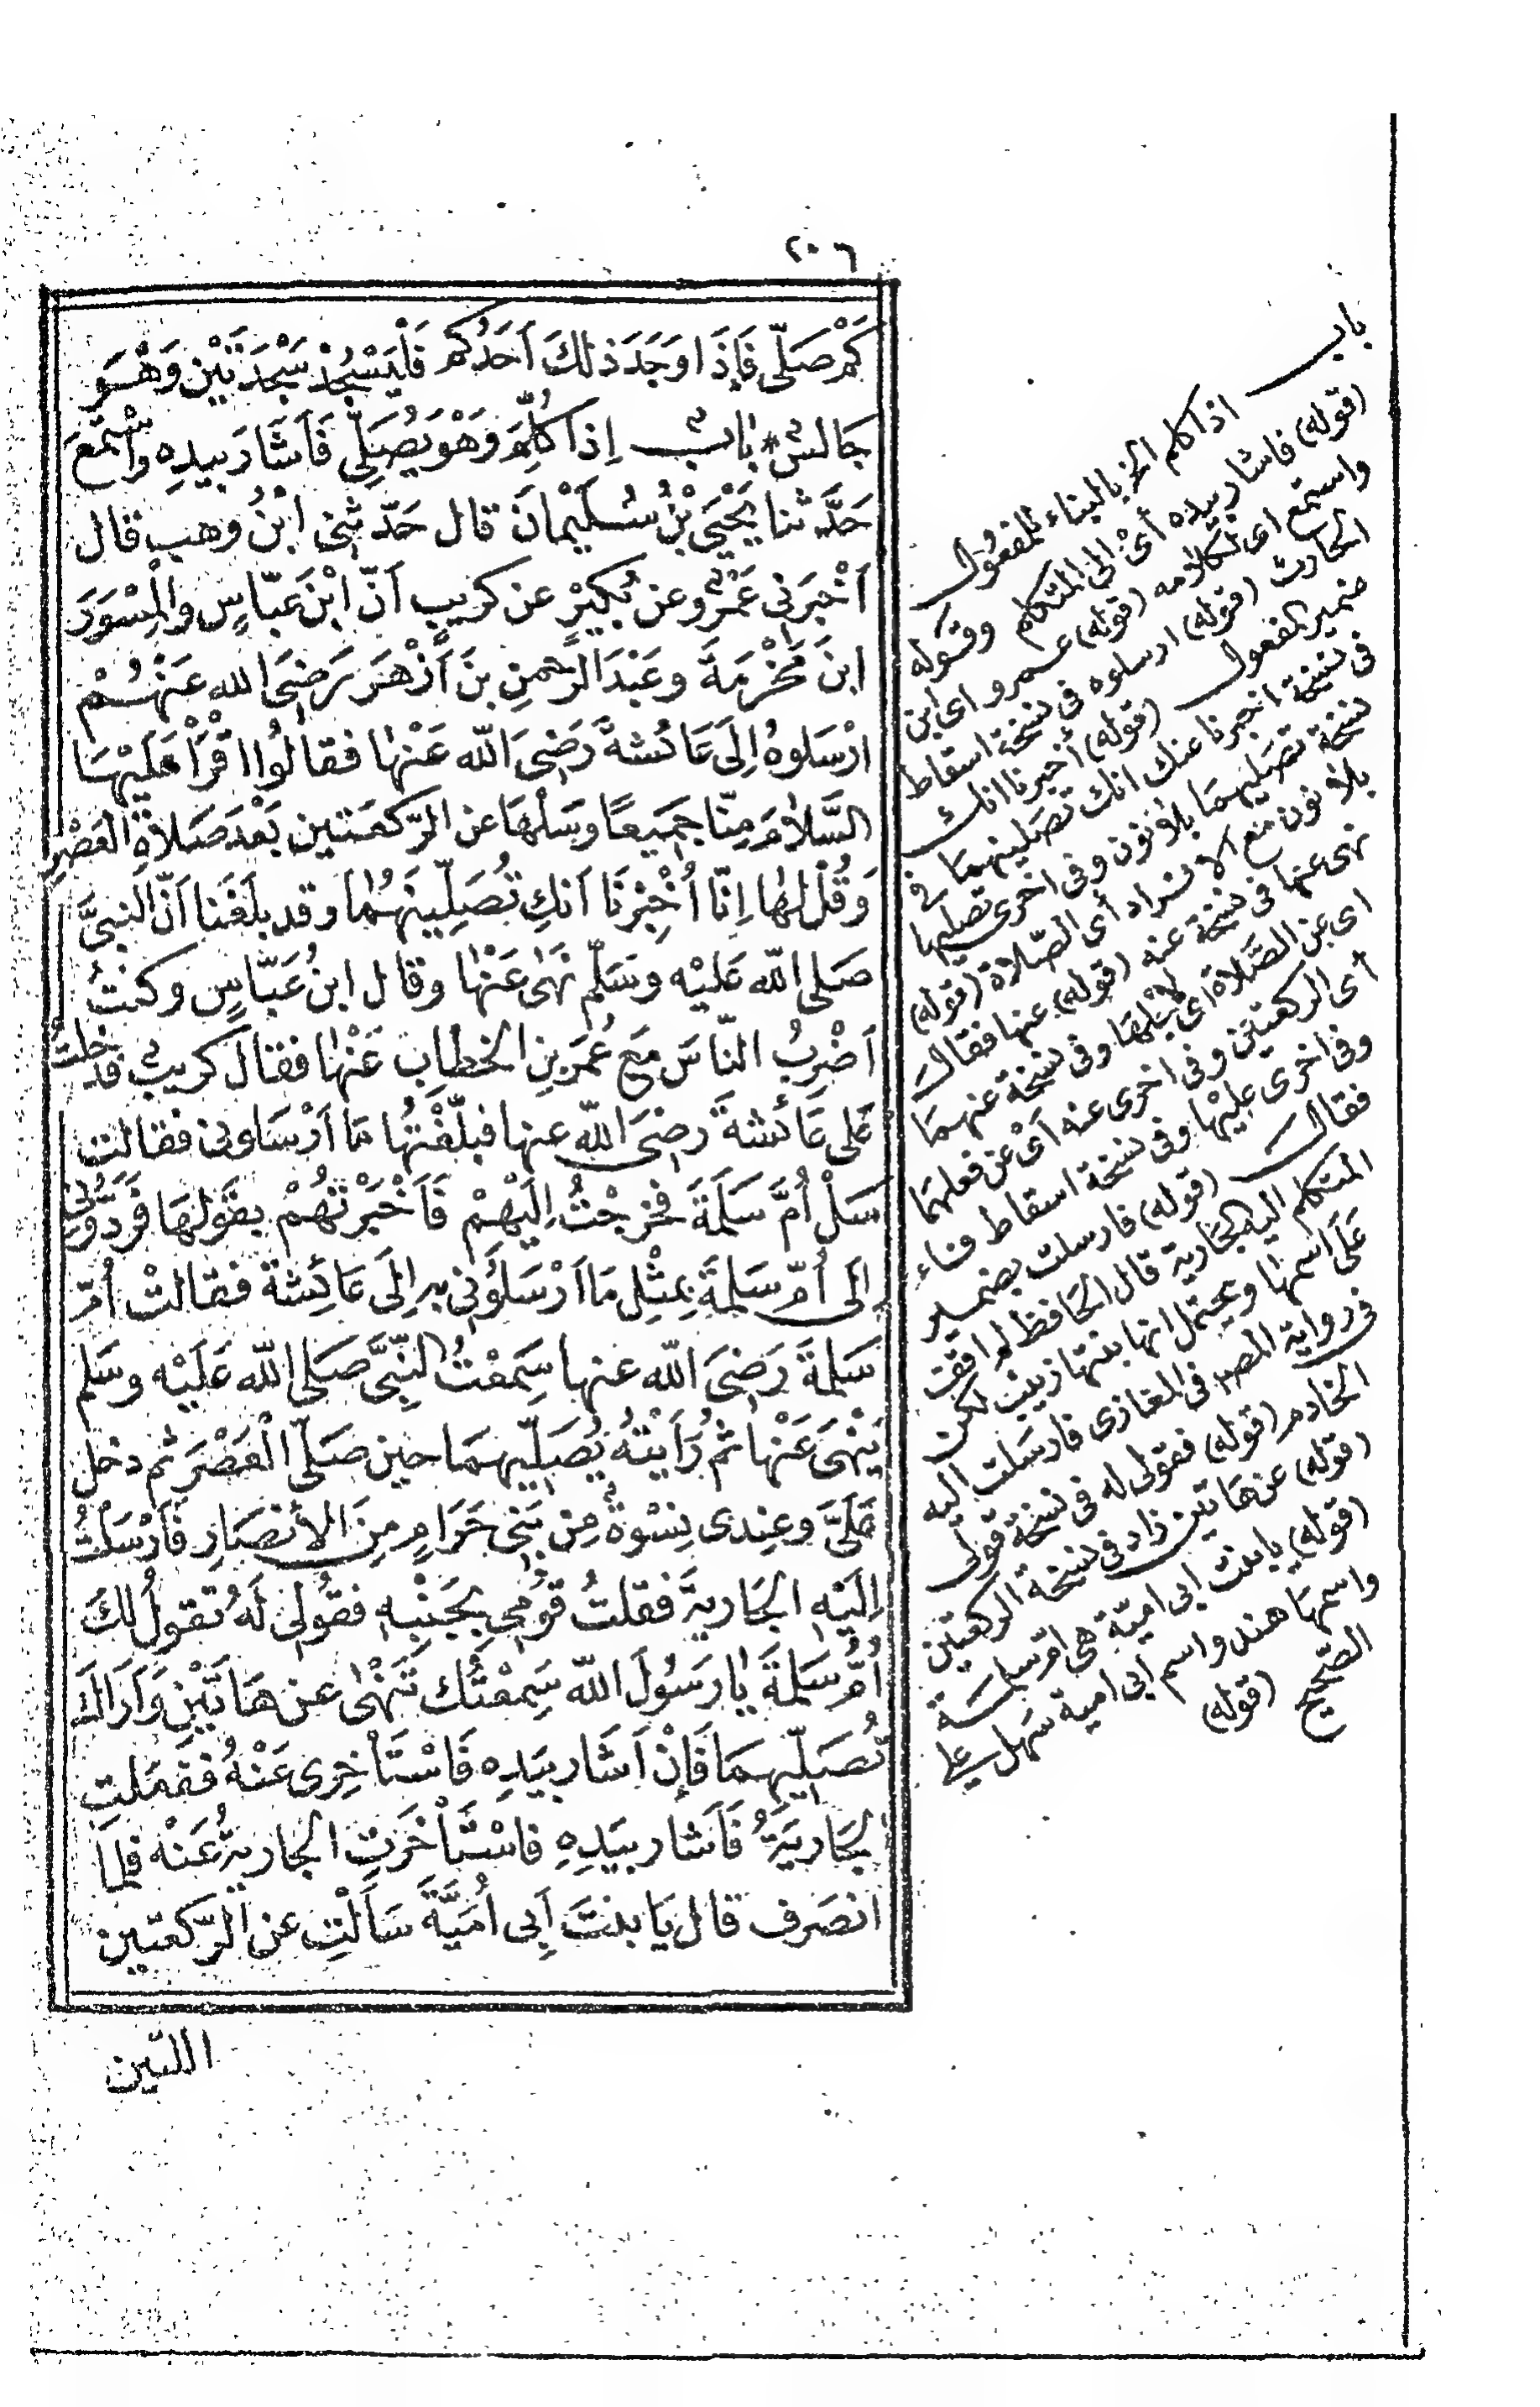 ٢٠٦
كَمْ صَلَّى فَاِذَا وَجَدَ ذلكَ اَحَدُكُم فَلْيَسْجُدْ سَجْدَتَيْنِ وَهْوَ
جَالسٌ * بابٌ اِذا كُلِّمَ وَهْوَ يُصَلِّى فَاَشَارَ بيدِهِ واسْتَمَعَ
حَدَّثنا يَحْيَى بْنُ سُلَيْمانَ قال حَدّثنِى ابْنُ وهبٍ قال
اَخْبَرَنِى عَمْرٌو عن بُكَيْرٍ عن كريبٍ اَنّ ابْنَ عَبّاسٍ والمِسْوَرَ
ابنَ مَخْرَمَةَ وعَبْدَ الرّحمنِ بنَ اَزْهَرَ رَضِىَ الله عَنْهُمْ
ارْسَلوهُ اِلَى عَائشةَ رَضِىَ الله عَنْها فقالُوا اقْرَأْ عَلَيْهَا
السَّلاَمَ مِنّا جَمِيعًا وسَلْهَا عن الرّكعتين بَعْدَ صَلاةِ العَصْرِ
وَقُلْ لَهَا اِنّا اُخْبِرْنَا اَنكِ تُصَلِّينَهُمَا وقد بلَغَنا اَنّ النبىَّ
صَلى الله عَليْه وسَلّم نَهَى عَنْها وقال ابنُ عَبّاسٍ وكنتُ
اَضْرِبُ النّاسَ مَع عُمَر بنِ الخطابِ عَنْها فقال كريبٌ فَدخلتُ
عَلى عَائشةَ رضِىَ الله عنها فبلّغْتُها مَا اَرْسَلونى فقالت
سَلْ اُمَّ سَلَمَةَ فخرجْتُ اِلَيْهِمْ فَاَخْبَرْتُهُمْ بقَوْلِهَا فَرَدُّونِى
اِلَى اُمّ سَلمَةَ بمِثْلِ مَا اَرْسَلُونِى به اِلَى عَائِشةَ فقالتْ اُمّ
سَلمةَ رَضِىَ الله عنها سِمَعْتُ النَّبِىَّ صَلى الله عَلَيْه وسَلم
يَنْهَى عَنْها ثُم رَاَيْتُهُ يُصَلِّيهِمَا حين صَلّى الْعَصْرَ ثُم دخل
عَلَىَّ وعِندى نِسْوةٌ مِن بَنِى حَرَامٍ مِنَ الأنصَارِ فَاَرْسَلْتُ
اِلَيْهِ الجَاريةَ فقلتُ قُومِى بِجَنْبِهِ فقُولى لَهُ تقولُ لكَ
اُمُّ سَلمةَ يارَسُولَ الله سَمِعْتُك تَنْهَى عن هَاتَيْنِ وَاَرَاكَ
تُصَلِّيهمَا فَاِنْ اَشَار بيَدِه فَاسْتَأخِرِى عَنْهُ ففعَلتِ
الجَارِيَةُ فَاَشار بيَدِهِ فاسْتَأخَرَتِ الجاريةُ عَنْه فلما
انصَرف قال يَا بنتَ اَبِى اُمَيَّةَ سَاَلْتِ عن الرّكعتين
اللتين
باب اذا كلم الخ بالبناء للمفعول
(قوله) فاشار بيده أىْ الى المتكلم وقوله
واستمع اى لكلامه (قوله) عمرو اى ابن
الحارث (قوله) ارسلوه فى نسخة اسقاط
ضمير المفعول (قوله) أخبرنا انك
فى نسخة اخبرنا عنك انك تصلينهما فى
نسخة تصليهما بلا نون وفى اخرى تصليها
بلا نون مع الافراد أى الصّلاة (قوله)
نهى عنها فى نسخة عنه (قوله) عنها فقال
اى عن الصَّلاة اى لاجلها وفى نسخة عنهما
أى الركعتين وفى اخرى عنه أىْ عن فعلهما
وفى اخرى عليْها وفى نسخة اسقاط فاء
فقال (قوله) فارسلت بضمير
المتكلم اليه الجارية قال الحافظ لم اقف
عَلى اسمها ويحتمل انها بنتها زينب لكن
فى رواية المصـ فى المغازى فارسَلت اليه
الخادم (قوله) فقولى له فى نسخة قولى
(قوله) عن هاتين زاد فى نسخة الركعتين
(قوله) يا بنت ابى اميّة هى امّ سلمة
واسمهَا هند واسم ابى امية سَهل على
الصّحيح (قوله)